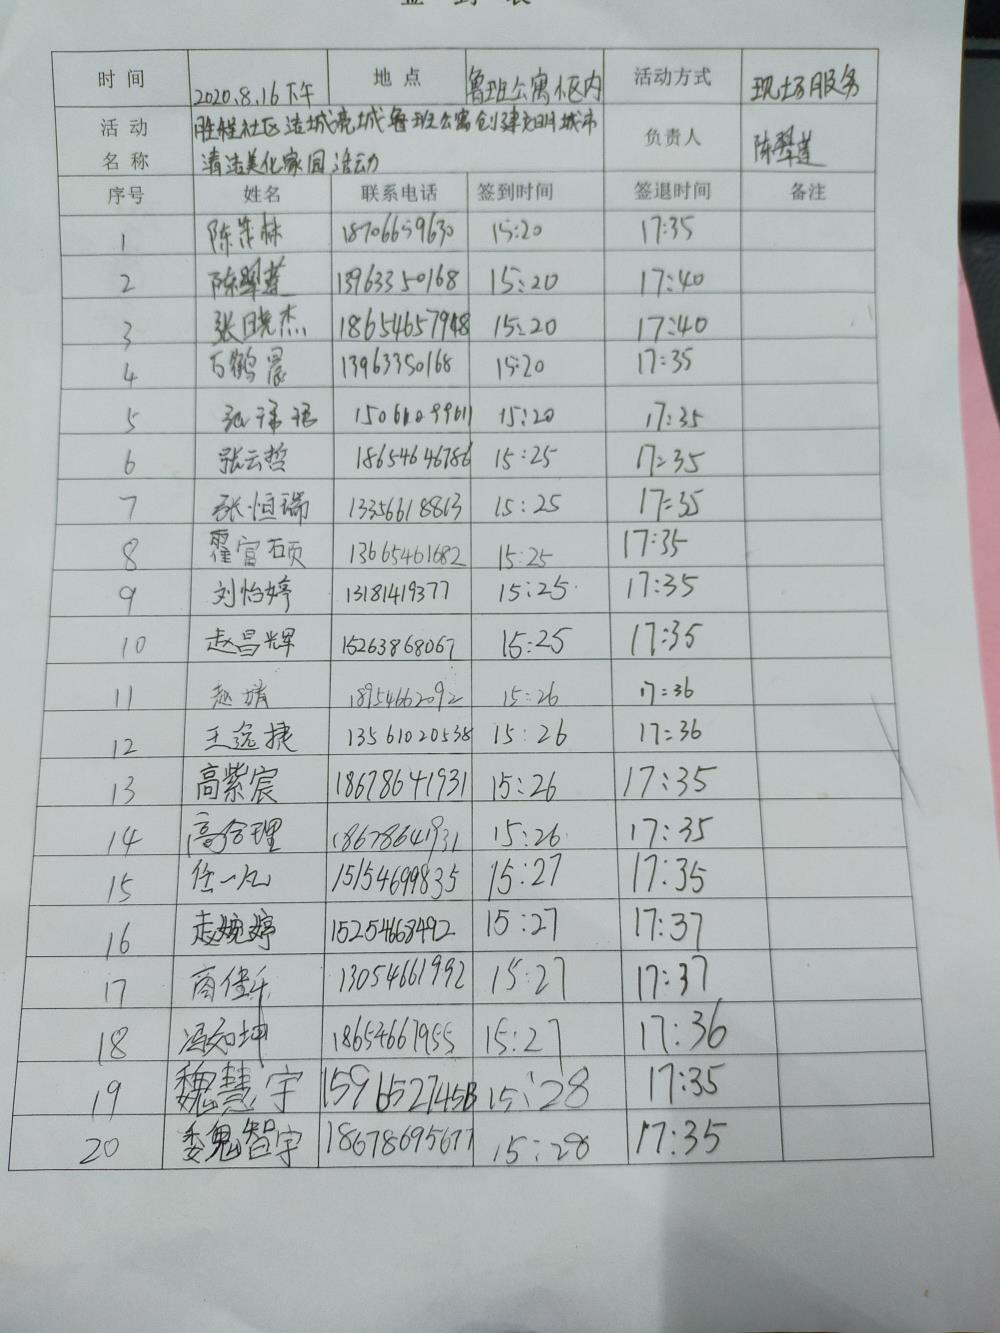 签 到 表
时 间 2020.8.16下午 地 点 鲁班公寓小区内 活动方式 现场服务
活 动 名 称 胜糖社区洁城亮城鲁班公寓创建文明城市 负责人 陈翠莲
清洁美化家园活动
序号 姓名 联系电话 签到时间 签退时间 备注
1 陈 林 18706659630 15:20 17:35
2 陈翠莲 13963350168 15:20 17:40
3 张晓杰 18654657948 15:20 17:40
4 万鹤晨 13963350168 15:20 17:35
5 15061099611 15:20 17:35
6 张云哲 18654646786 15:25 17:35
7 张恒瑞 13356618813 15:25 17:35
8 霍富硕 13665461682 15:25 17:35
9 刘怡婷 13181419377 15:25 17:35
10 赵昌辉 15263868067 15:25 17:35
11 赵婧 18954662092 15:26 17:36
12 王逸捷 13561020538 15:26 17:36
13 高紫宸 18678641931 15:26 17:35
14 高合理 18678641931 15:26 17:35
15 任一凡 15154699835 15:27 17:35
16 赵婉婷 15254668492 15:27 17:37
17 商佳乐 13054661992 15:27 17:37
18 冯知坤 18654667955 15:27 17:36
19 魏慧宇 15:28 17:35
20 魏智宇 18678695677 15:28 17:35